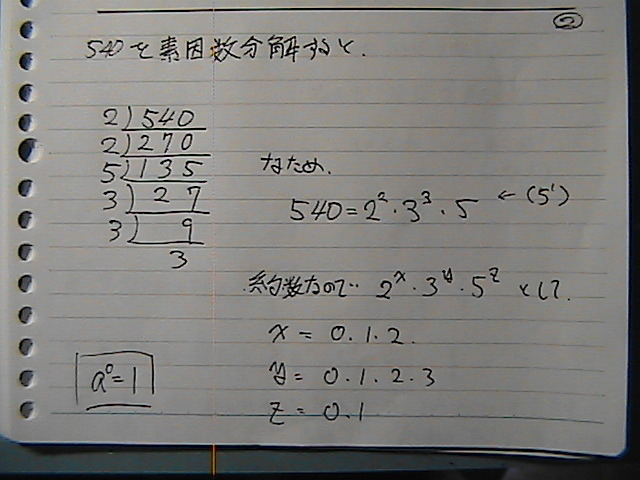 ②
540を素因数分解すると、
2)540
2)270
5)135
3)27
3)9
3
なため、
540=2²・3³・5 ←(5¹)
約数なので… 2ˣ・3ʸ・5ᶻ として、
x = 0.1.2.
y = 0.1.2.3
z = 0.1
a⁰=1